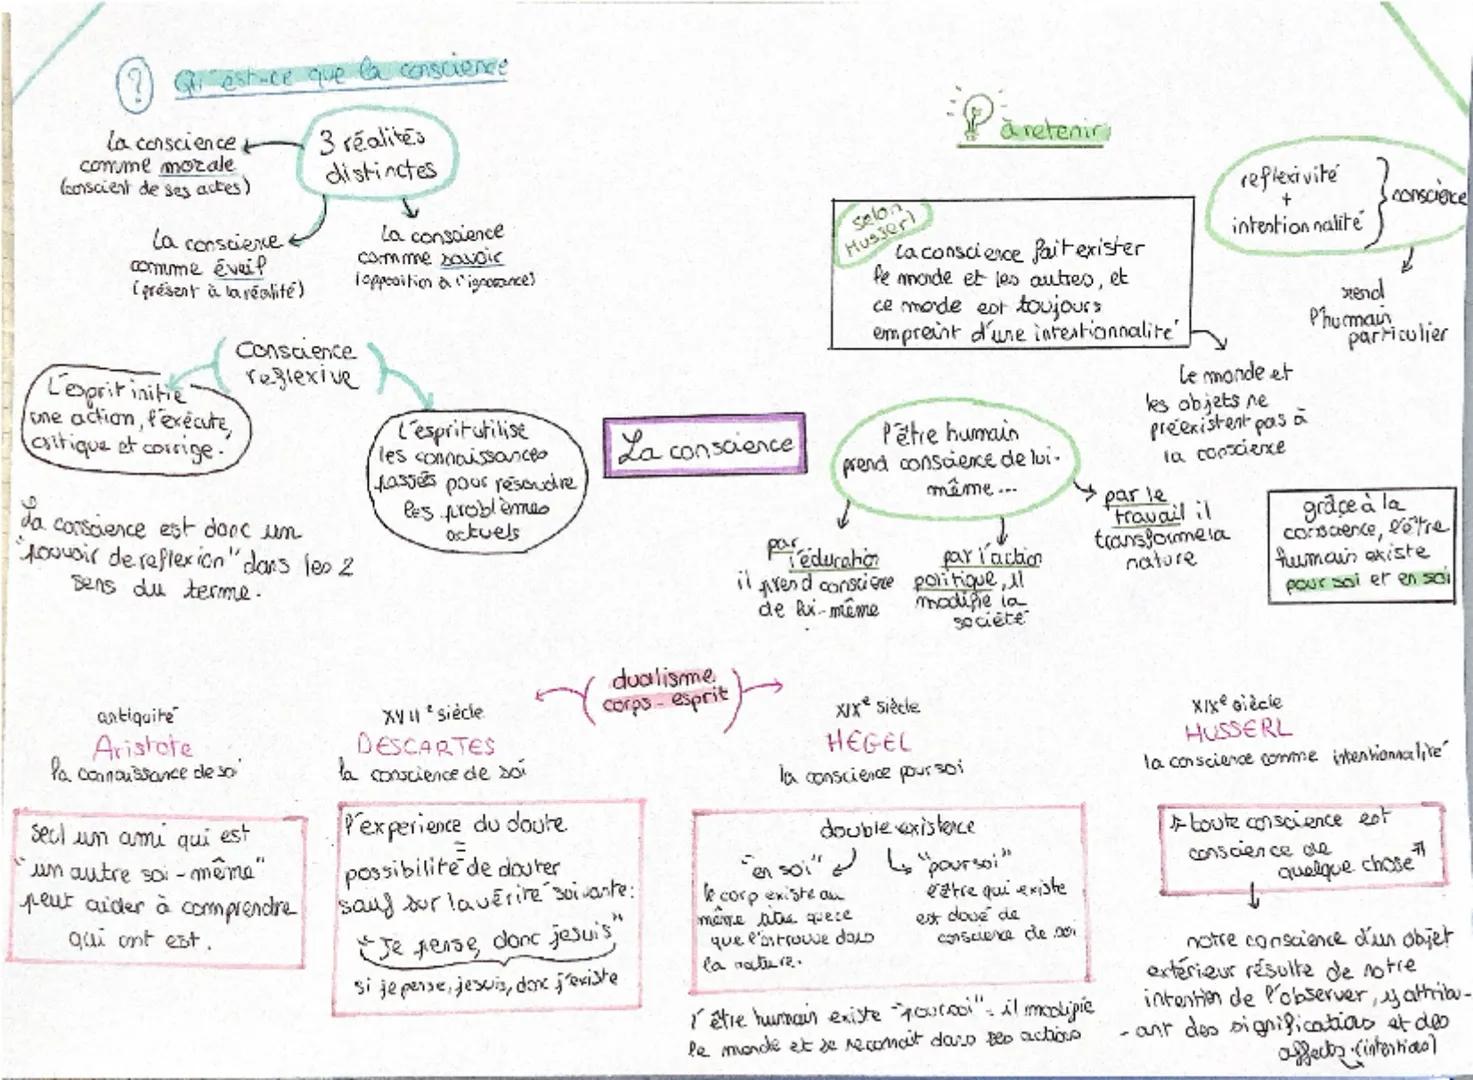 ?
Qu'est-ce que la conscience
3 réalités
distinctes
La conscience
comme morale
(conscient de ses actes)
La conscience
comme éveil
(présent à la réalité)
La conscience
comme savoir
(opposition à l'ignorance)
Conscience
reflexive
L'esprit initie
une action, l'exécute,
critique et corrige.
L'esprit utilise
les connaissances
passés pour résoudre
les problèmes
actuels
La conscience est donc un
"pouvoir de reflexion" dans les 2
sens du terme.
La conscience
à retenir
selon
Husserl
La conscience fait exister
le monde et les autres, et
ce monde est toujours
empreint d'une intentionnalité
Le monde et
les objets ne
préexistent pas à
la conscience
reflexivité
+
intentionnalité
conscience
rend
l'humain
particulier
l'être humain
prend conscience de lui-
même...
par
l'éducation
il prend conscience
de lui-même
par l'action
politique, il
modifie la
société
par le
travail il
transforme la
nature
grâce à la
conscience, l'être
humain existe
pour soi et en soi
dualisme
corps-esprit
antiquité
Aristote
la connaissance de soi
seul un ami qui est
"un autre soi-même"
peut aider à comprendre
qui ont est.
XVIIe siècle
DESCARTES
la conscience de soi
l'experience du doute
=
possibilité de douter
sauf sur la vérité suivante:
"Je pense, donc je suis"
si je pense, je suis, donc j'existe
XIXe siècle
HEGEL
la conscience pour soi
double existence
"en soi"
le corp existe au
même
que l'on trouve dans
la nature.
"pour soi"
l'être qui existe
est doué de
conscience de soi
l'être humain existe "pour soi" = il modifie
le monde et se reconnait dans ses actions
XIXe siècle
HUSSERL
la conscience comme intentionnalité
"toute conscience est
conscience de
quelque chose"
notre conscience d'un objet
extérieur résulte de notre
intention de l'observer, y attribu-
-ant des significations et des
affects (intentions)